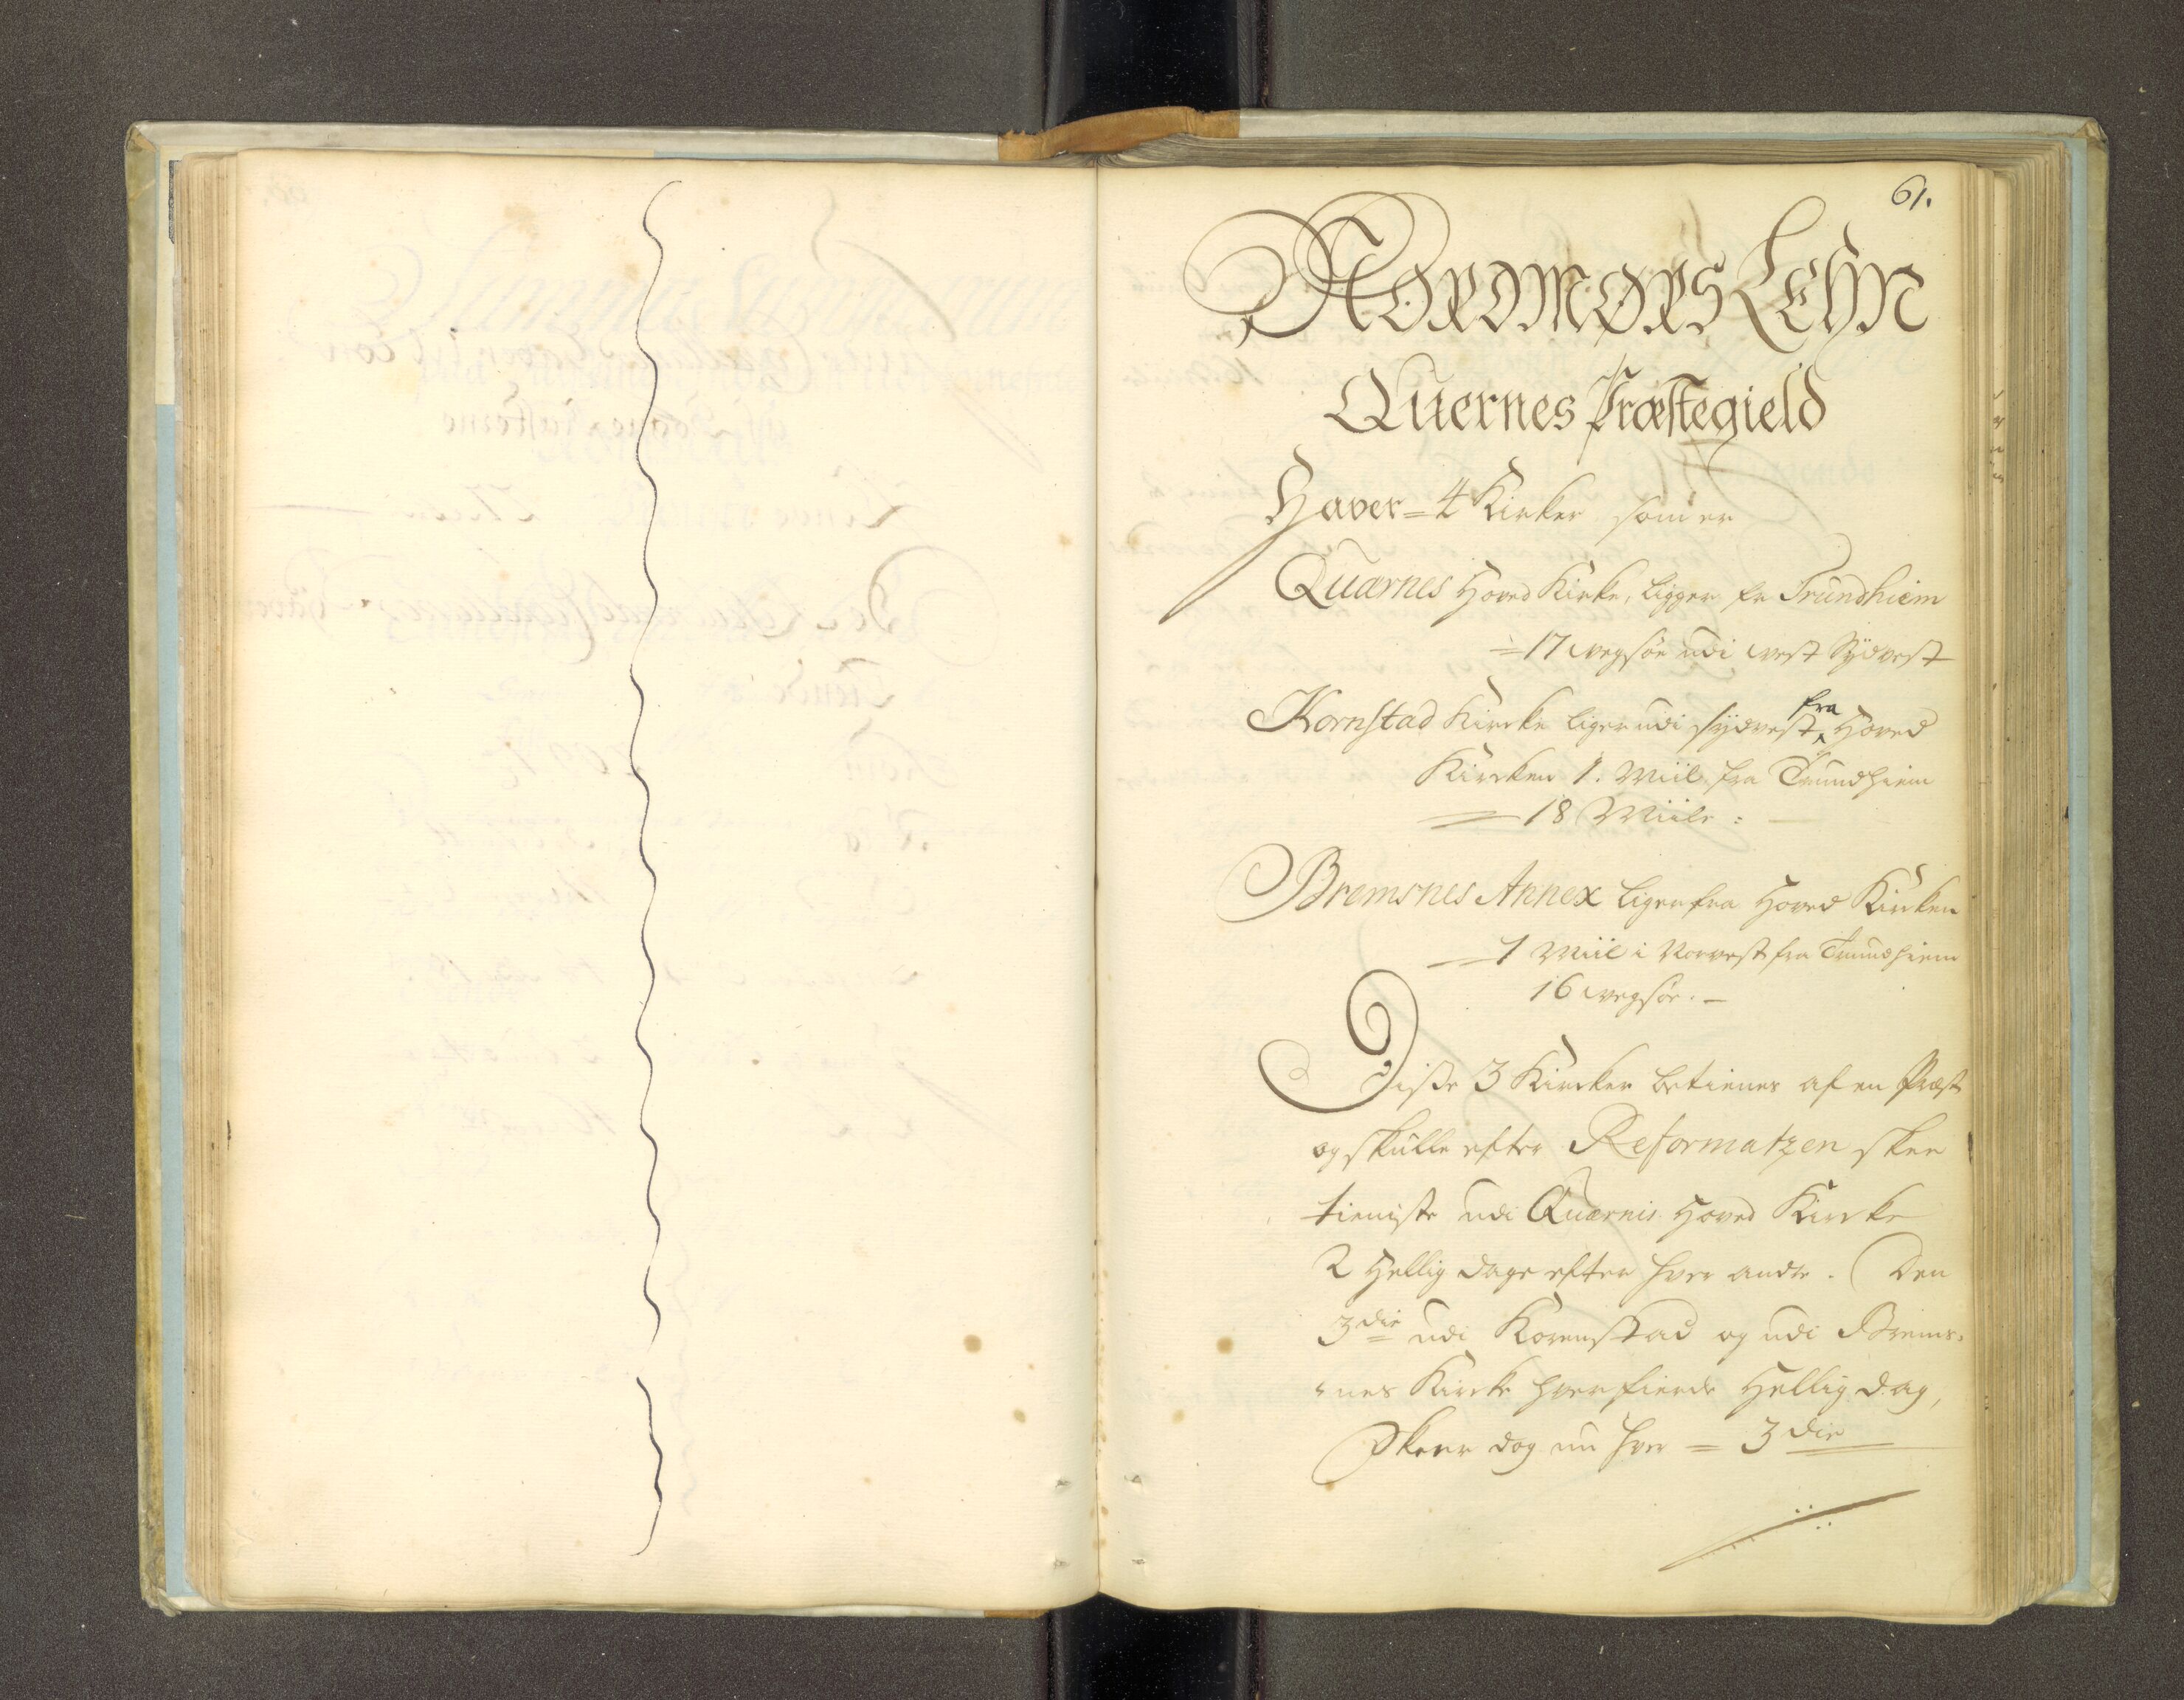 61.
NORDMØRS LEHN
Quernes Præstegield
Haver = 4 Kirker som er
Quærnes Hoved Kirke, ligger fr Trundhiem
= 17 wegsøe udi west Sydvest
Kornstad Kircke liger udi sydvest fra Hoved
Kircken 1. Miil fra Trundhiem
= 18 Miile :
Bremsnes Annex liger fra Hoved Kircken
1 Miil i Norvest fra Trundhiem
16 wegsøe. –
Disse 3 Kircker betienes af en Præst
og skulle efter Reformatzen skee
tieniste udi Quærnis Hoved Kircke
2 Hellig dage efter hver andr. Den
3die udi Korenstad og udi Brems-
nes Kircke hver fierde Hellig dag,
Skeer dog nu hver = 3die